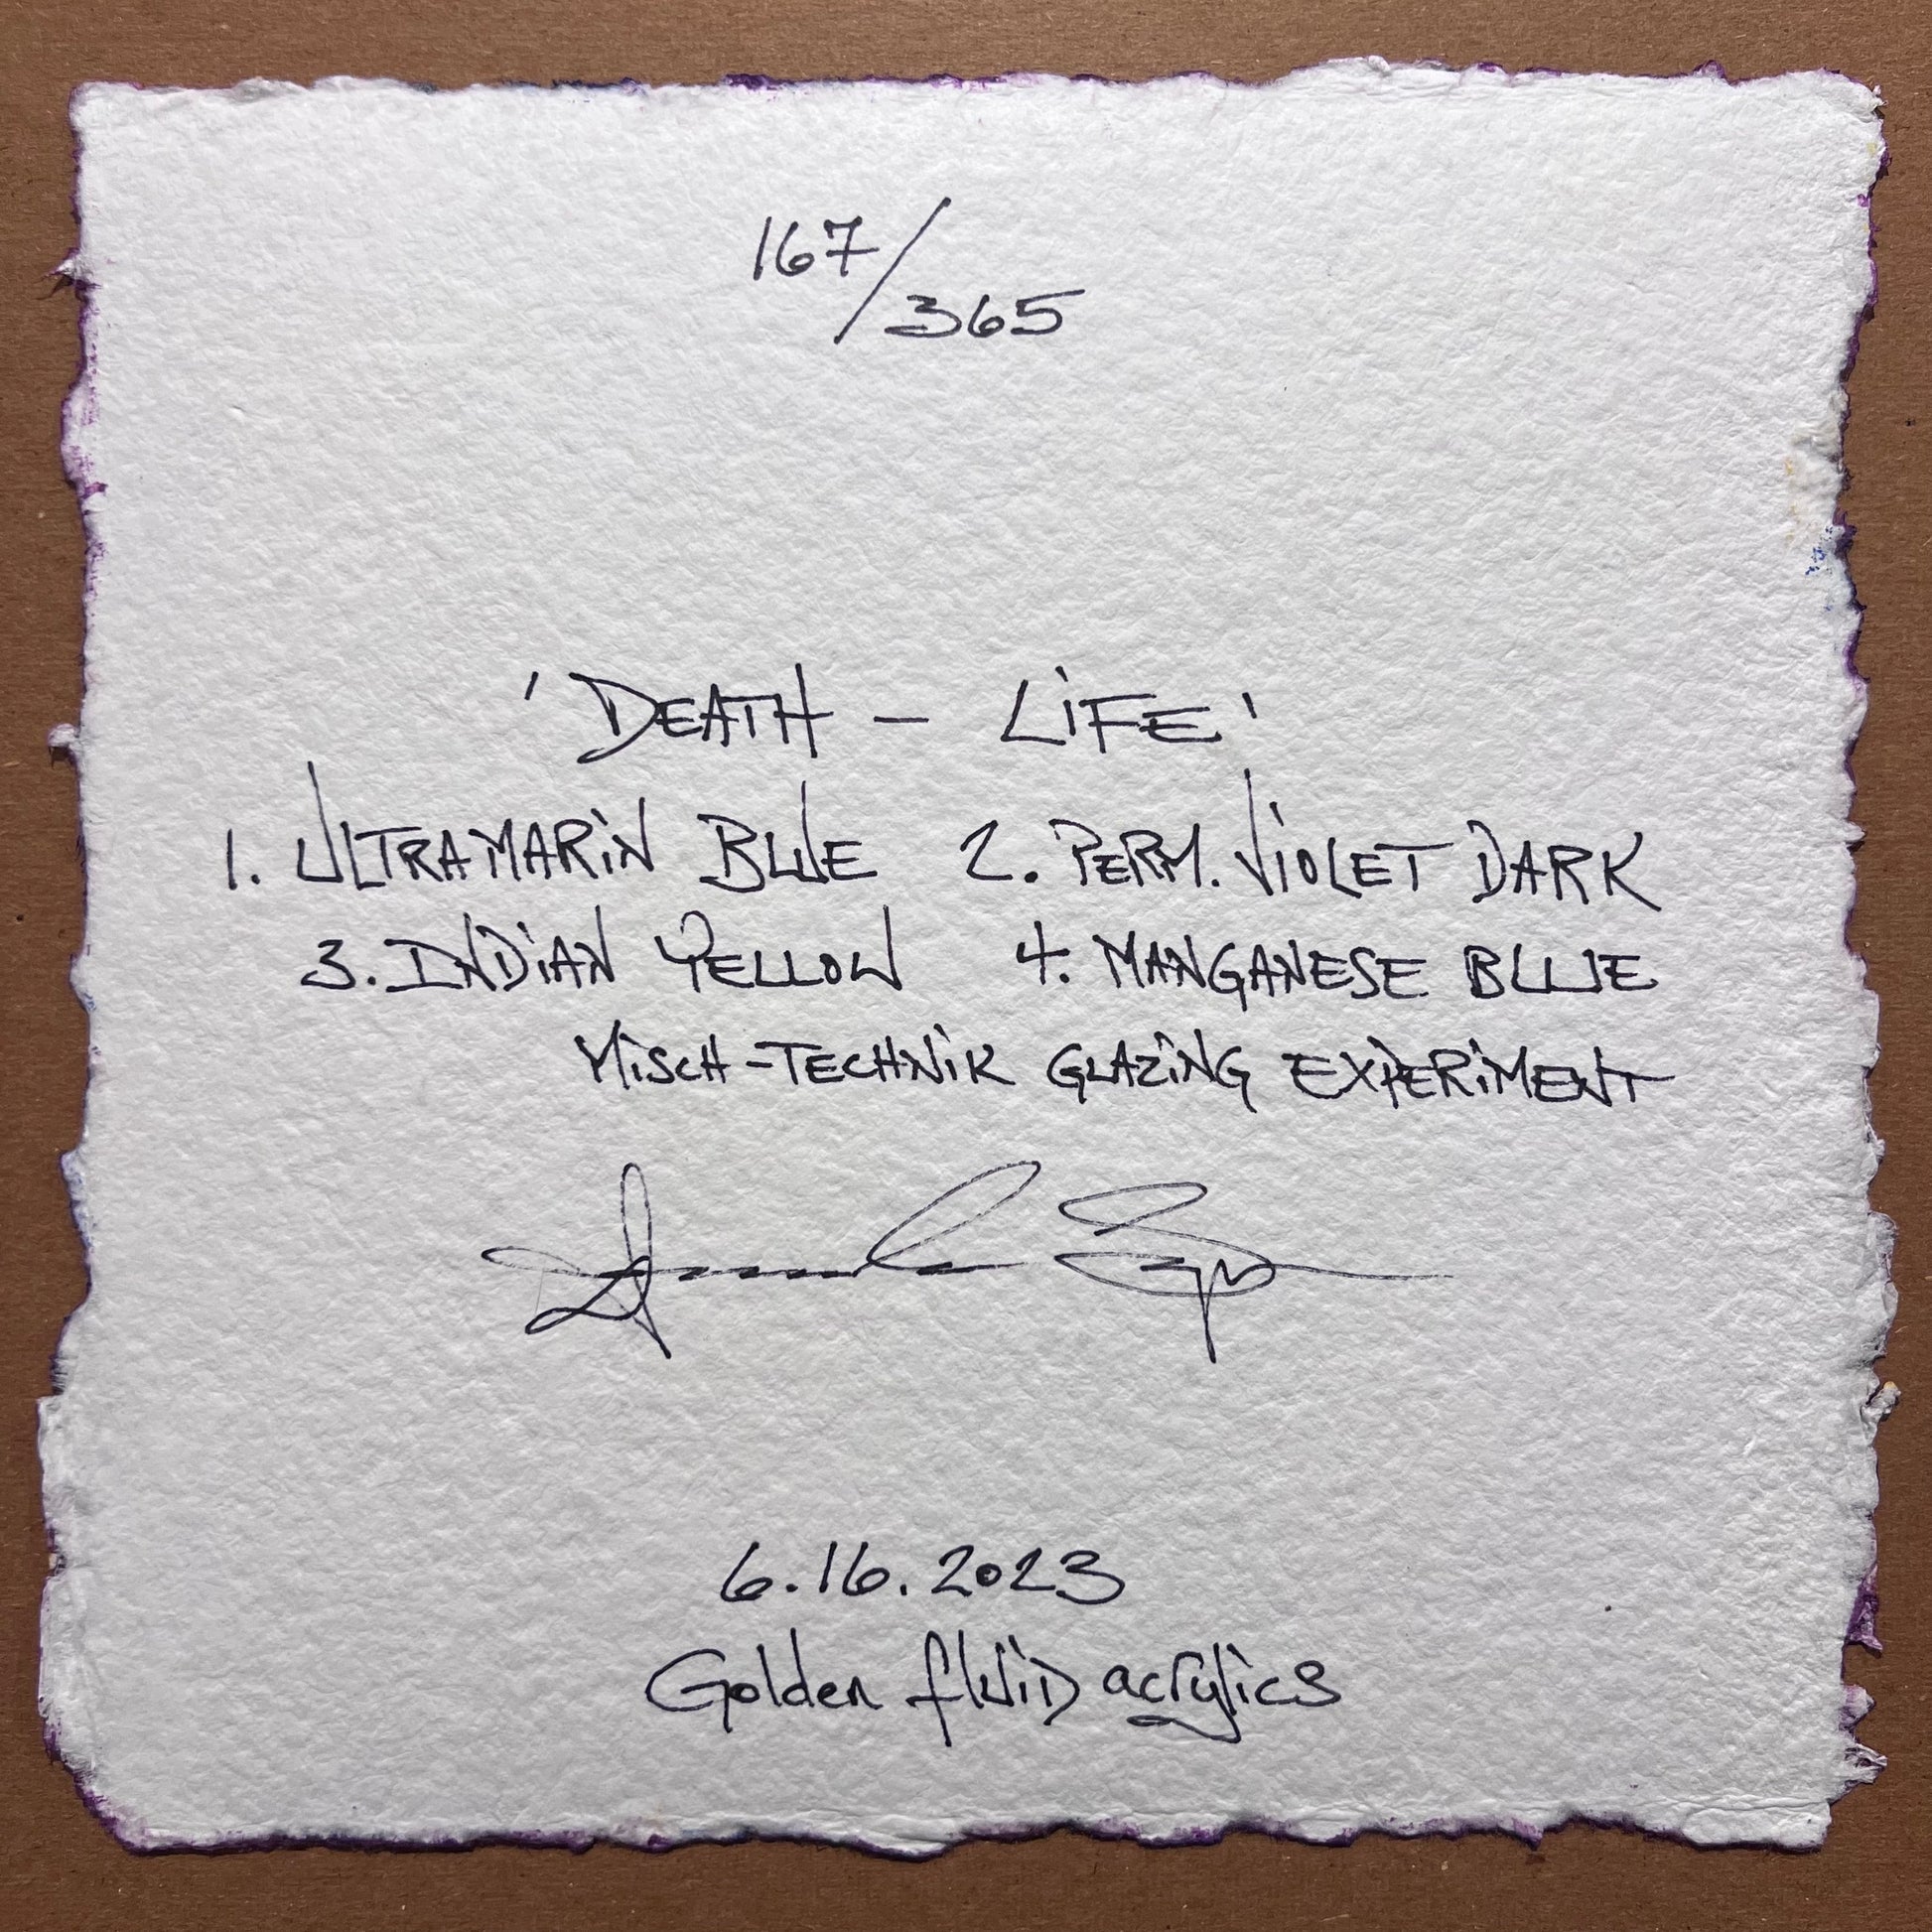 167/365
'DEATH - LiFE'
1. ULTRAMARiN BLUE 2. PERM. ViOLET DARK
3. INDiAN YELLOW 4. MANGANESE BLUE
MiSCH-TECHNiK GLAZiNG EXPERiMENT
6.16.2023
Golden fluiD acrylics